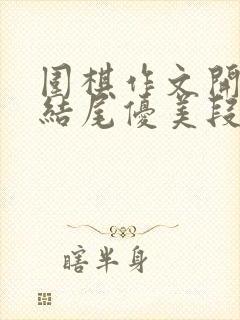 围棋作文開
結尾優美段
瞎半身